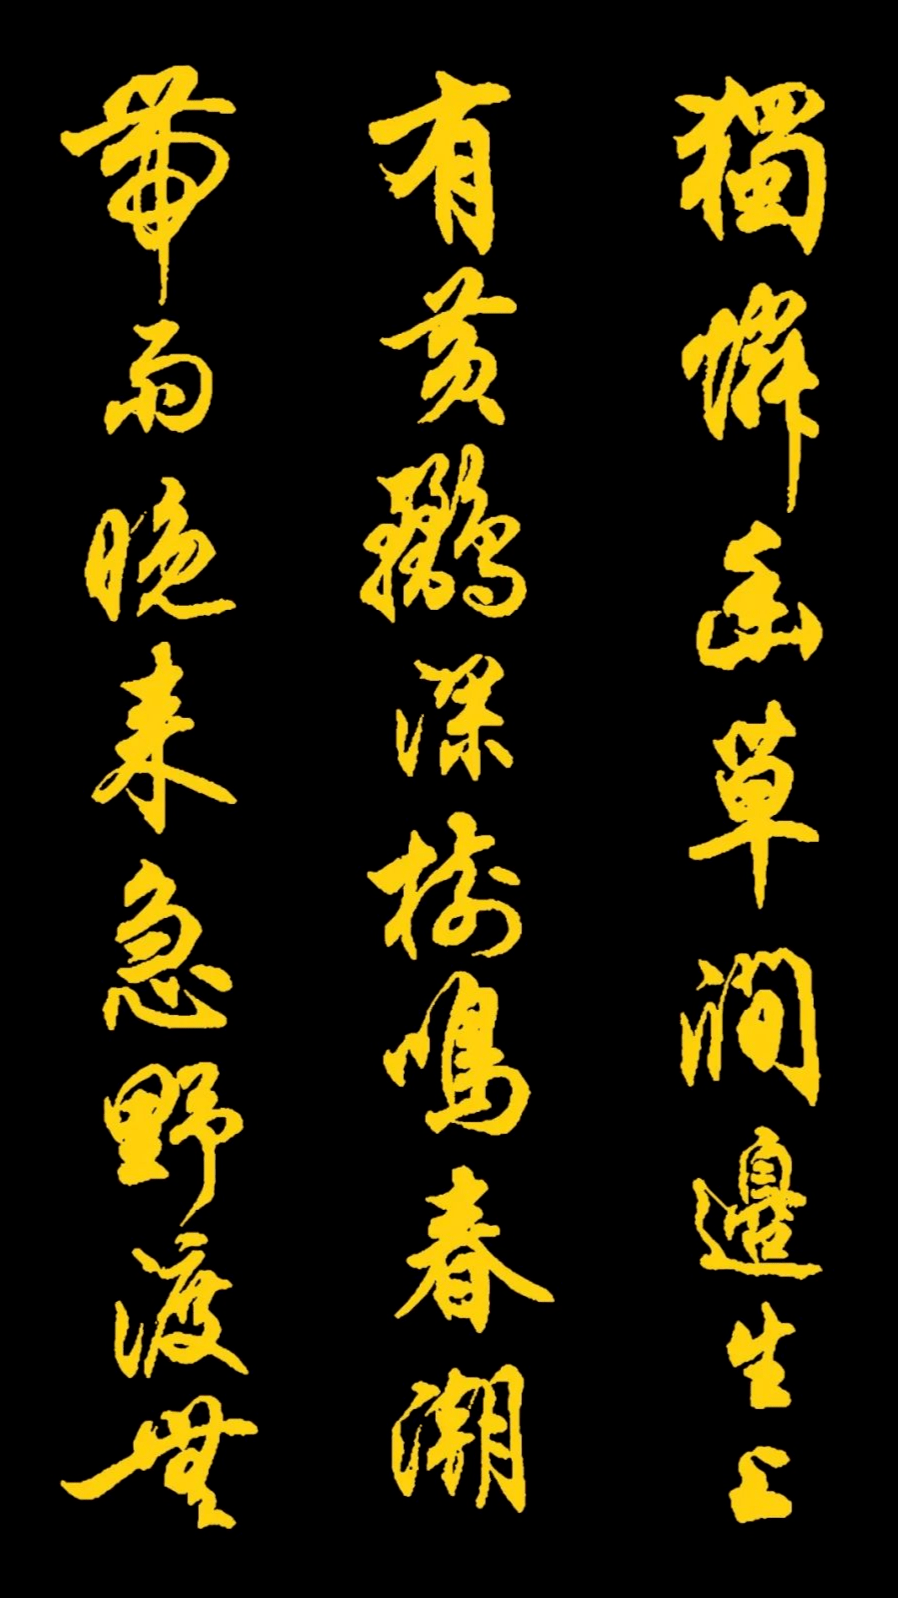 獨憐幽草澗邊生上
有黄鸝深樹鳴春潮
带雨晚来急野渡無